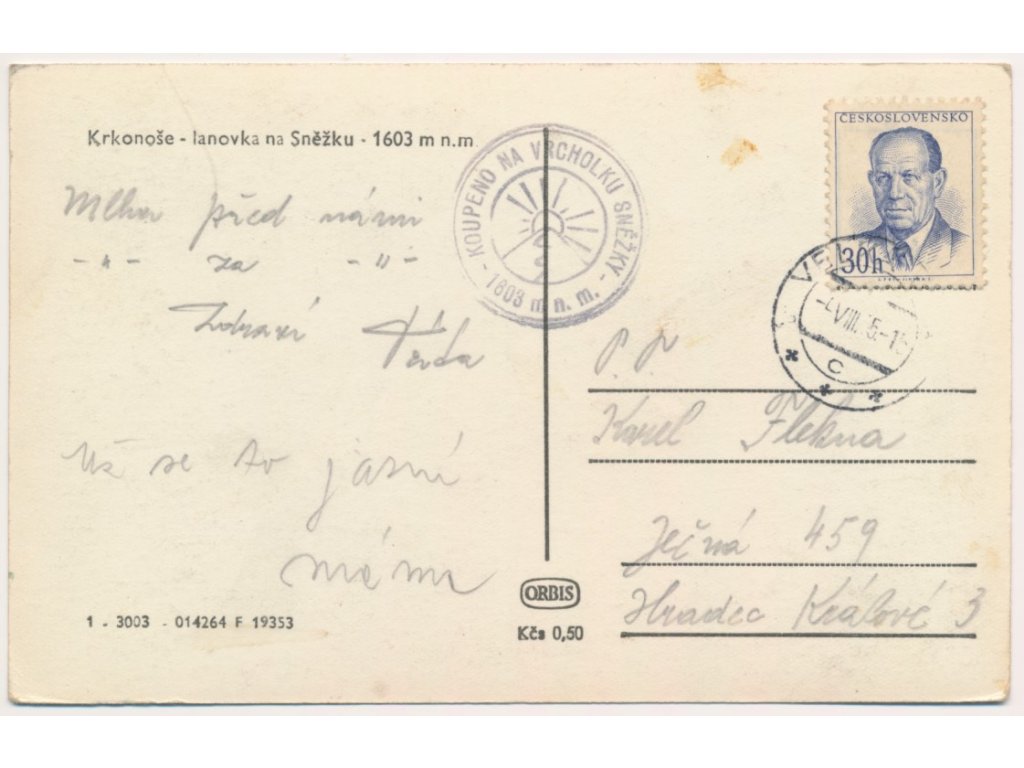 Krkonoše - lanovka na Sněžku - 1603 m n.m
Mlha před námi
-"- za -"-
Zdraví
Už se to jasní
KOUPENO NA VRCHOLKU SNĚŽKY
- 1603 m n. m. -
ČESKOSLOVENSKO
30h
-4.VIII.
C
P. P.
Karel Flekna
Ječná 459
Hradec Králové 3
ORBIS
Kčs 0,50
1 - 3003 - 014264 F 19353